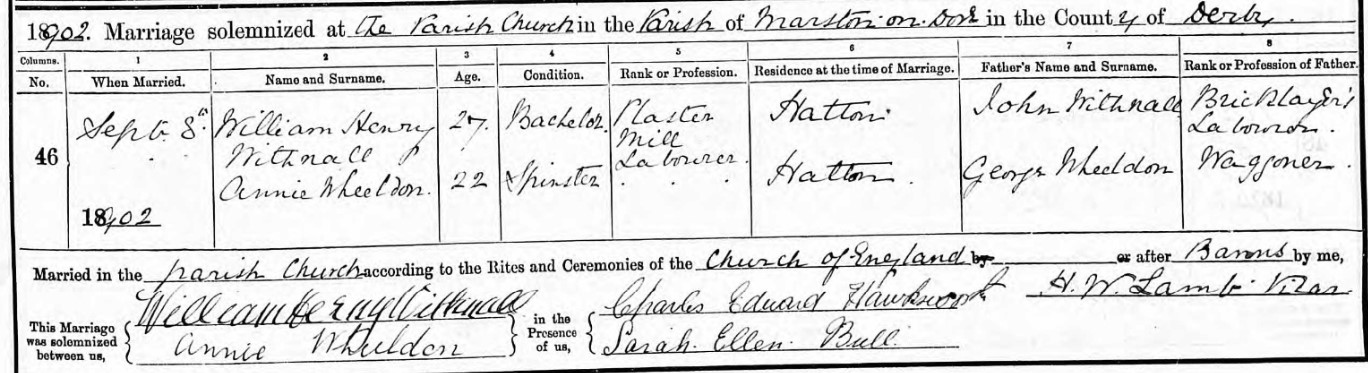 18902. Marriage solemnized at the Parish Church in the Parish of Marston-on-Dove in the County of Derby.
Columns. 1 2 3 4 5 6 7 8
No. When Married. Name and Surname. Age. Condition. Rank or Profession. Residence at the time of Marriage. Father's Name and Surname. Rank or Profession of Father.
46 Sept. 8th 1902 William Henry Withnall 27. Bachelor Plaster Mill Labourer Hatton John Withnall Bricklayer's Labourer.
Annie Wheeldon. 22 Spinster Hatton. George Wheeldon Waggoner.
Married in the parish Church according to the Rites and Ceremonies of the Church of England by or after Banns by me,
This Marriage was solemnized between us, William Henry Withnall in the Presence of us, Charles Edward Hawksworth H. W. Lamb. Vicar
Annie Wheeldon Sarah Ellen Bull.